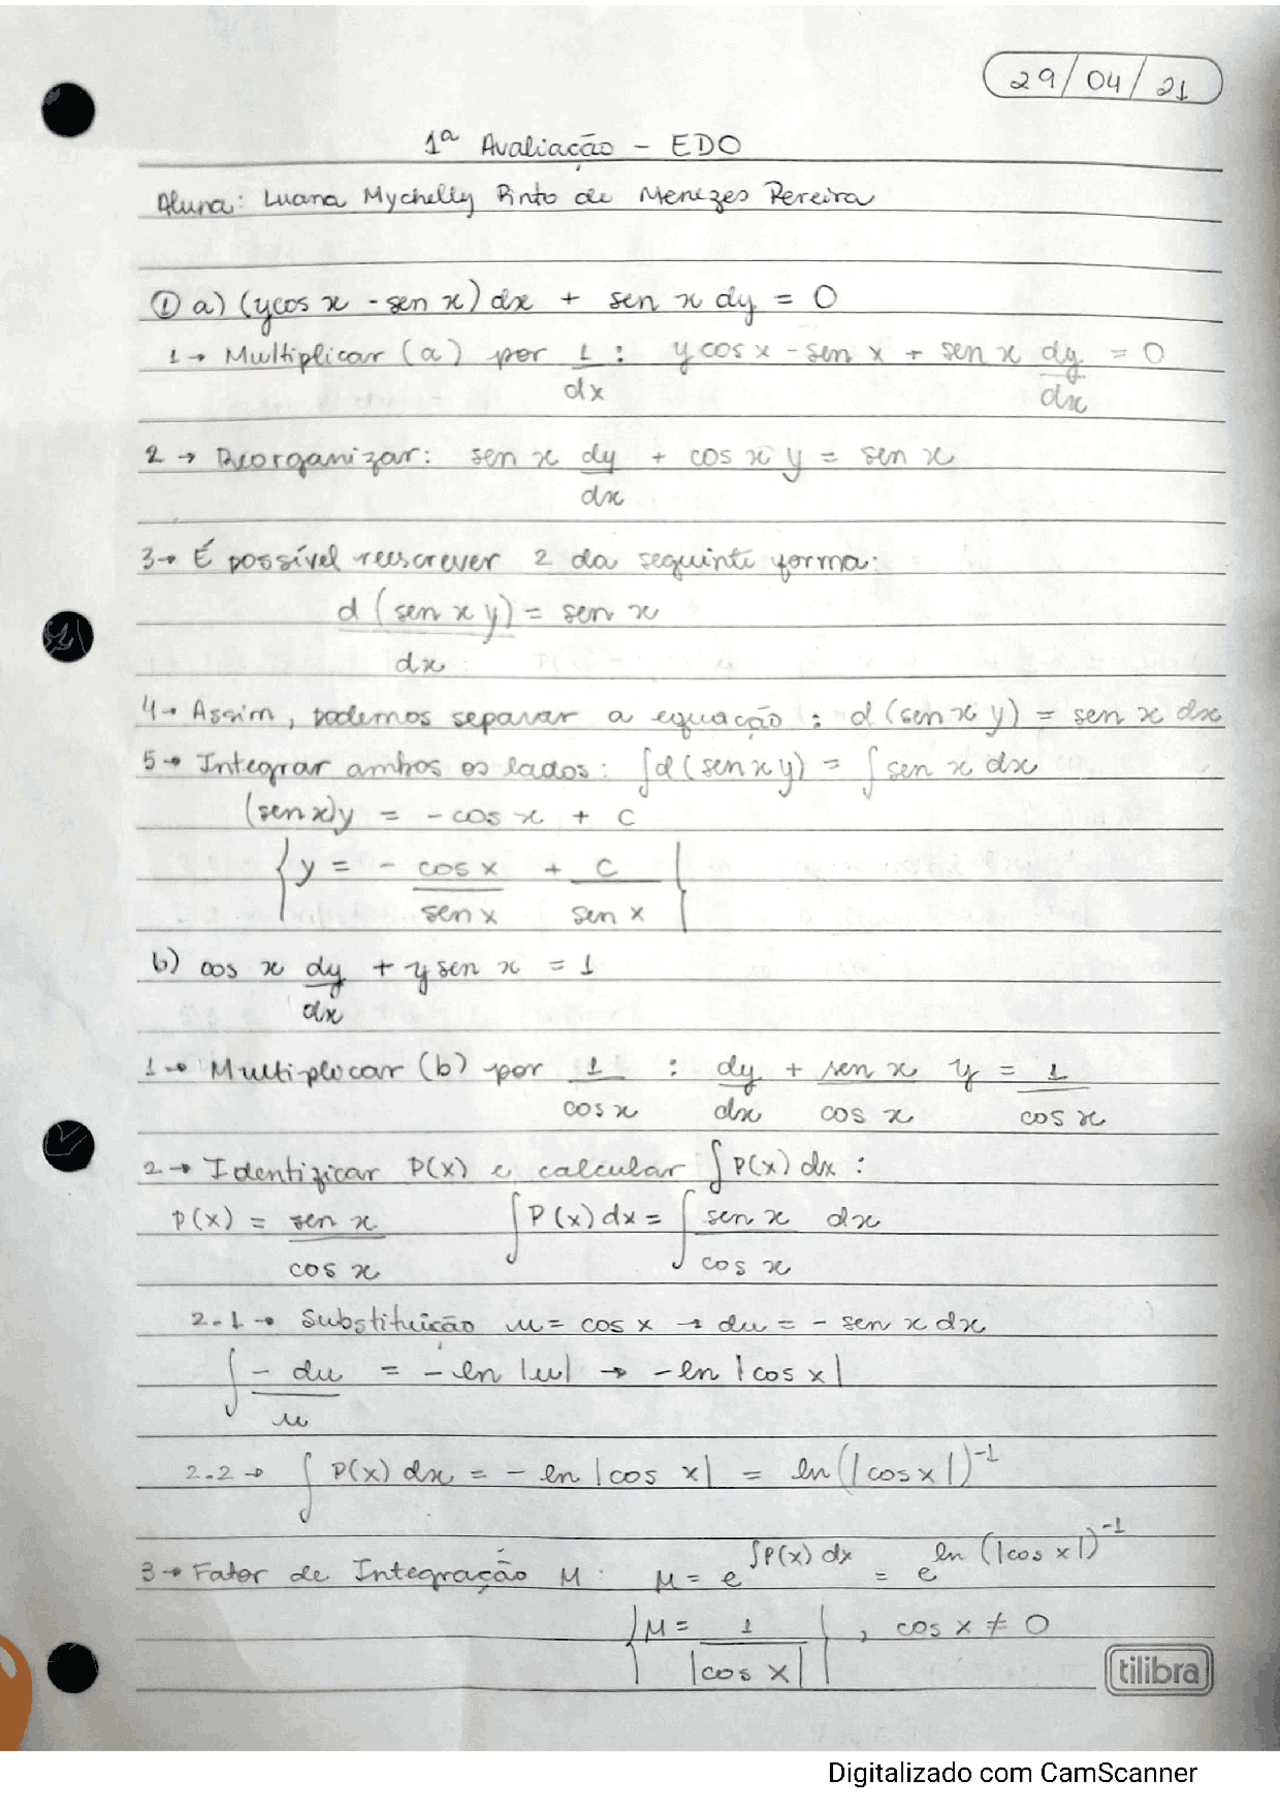 29/04/21
1ª Avaliação - EDO
Aluna: Luana Mychelly Pinto de Menezes Pereira
① a) (ycos x - sen x) dx + sen x dy = 0
1 → Multiplicar (a) por 1/dx : y cos x - sen x + sen x dy/dx = 0
2 → Reorganizar: sen x dy/dx + cos x y = sen x
3 → É possível reescrever 2 da seguinte forma:
d (sen x y)/dx = sen x
4 → Assim, podemos separar a equação : d (sen x y) = sen x dx
5 → Integrar ambos os lados: ∫d(sen x y) = ∫ sen x dx
(sen x)y = - cos x + c
{y = - cos x/sen x + c/sen x}
b) cos x dy/dx + y sen x = 1
1 → Multiplicar (b) por 1/cos x : dy/dx + sen x/cos x y = 1/cos x
2 → Identificar P(x) e calcular ∫P(x) dx :
P(x) = sen x/cos x ∫P(x) dx = ∫ sen x/cos x dx
2.1 → Substituição u = cos x → du = - sen x dx
∫ - du/u = - ln |u| → - ln |cos x|
2.2 → ∫ P(x) dx = - ln |cos x| = ln (|cos x|)⁻¹
3 → Fator de Integração M : μ = e^∫P(x) dx = e^ln (|cos x|)⁻¹
{μ = 1/|cos x|} , cos x ≠ 0
tilibra
Digitalizado com CamScanner